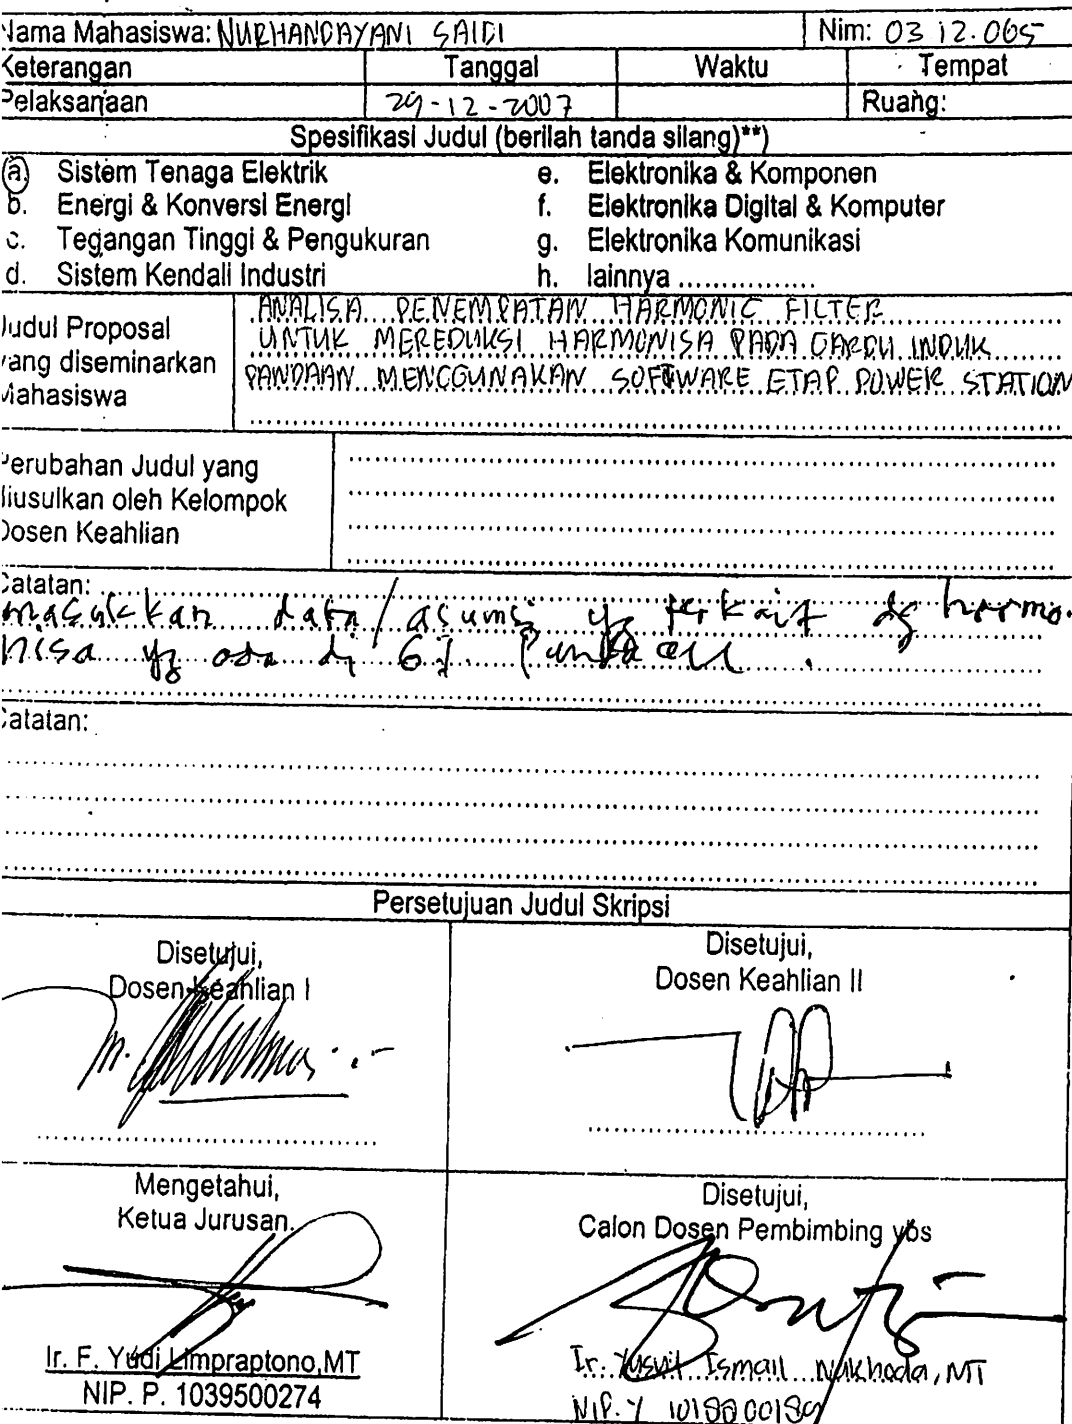 Nama Mahasiswa: NURHANDAYANI SAIDI Nim: 03 12.065
Keterangan Tanggal Waktu Tempat
Pelaksanaan 29-12-2007 Ruang:
Spesifikasi Judul (berilah tanda silang)**)
a. Sistem Tenaga Elektrik e. Elektronika & Komponen
b. Energi & Konversi Energi f. Elektronika Digital & Komputer
c. Tegangan Tinggi & Pengukuran g. Elektronika Komunikasi
d. Sistem Kendali Industri h. lainnya ................
Judul Proposal yang diseminarkan Mahasiswa
ANALISA PENEMPATAN HARMONIC FILTER
UNTUK MEREDUKSI HARMONISA PADA GARDU INDUK
PANDAAN MENGGUNAKAN SOFTWARE ETAP POWER STATION
Perubahan Judul yang
diusulkan oleh Kelompok
Dosen Keahlian
Catatan:
masukkan data/asumsi yg terkait dg harmo-
nisa yg ada di GI Pandaan.
Catatan:
Persetujuan Judul Skripsi
Disetujui,
Dosen Keahlian I
Disetujui,
Dosen Keahlian II
Mengetahui,
Ketua Jurusan.
Ir. F. Yudi Limpraptono,MT
NIP. P. 1039500274
Disetujui,
Calon Dosen Pembimbing ybs
Ir. Yusuf Ismail Nakhoda, MT
NIP. Y